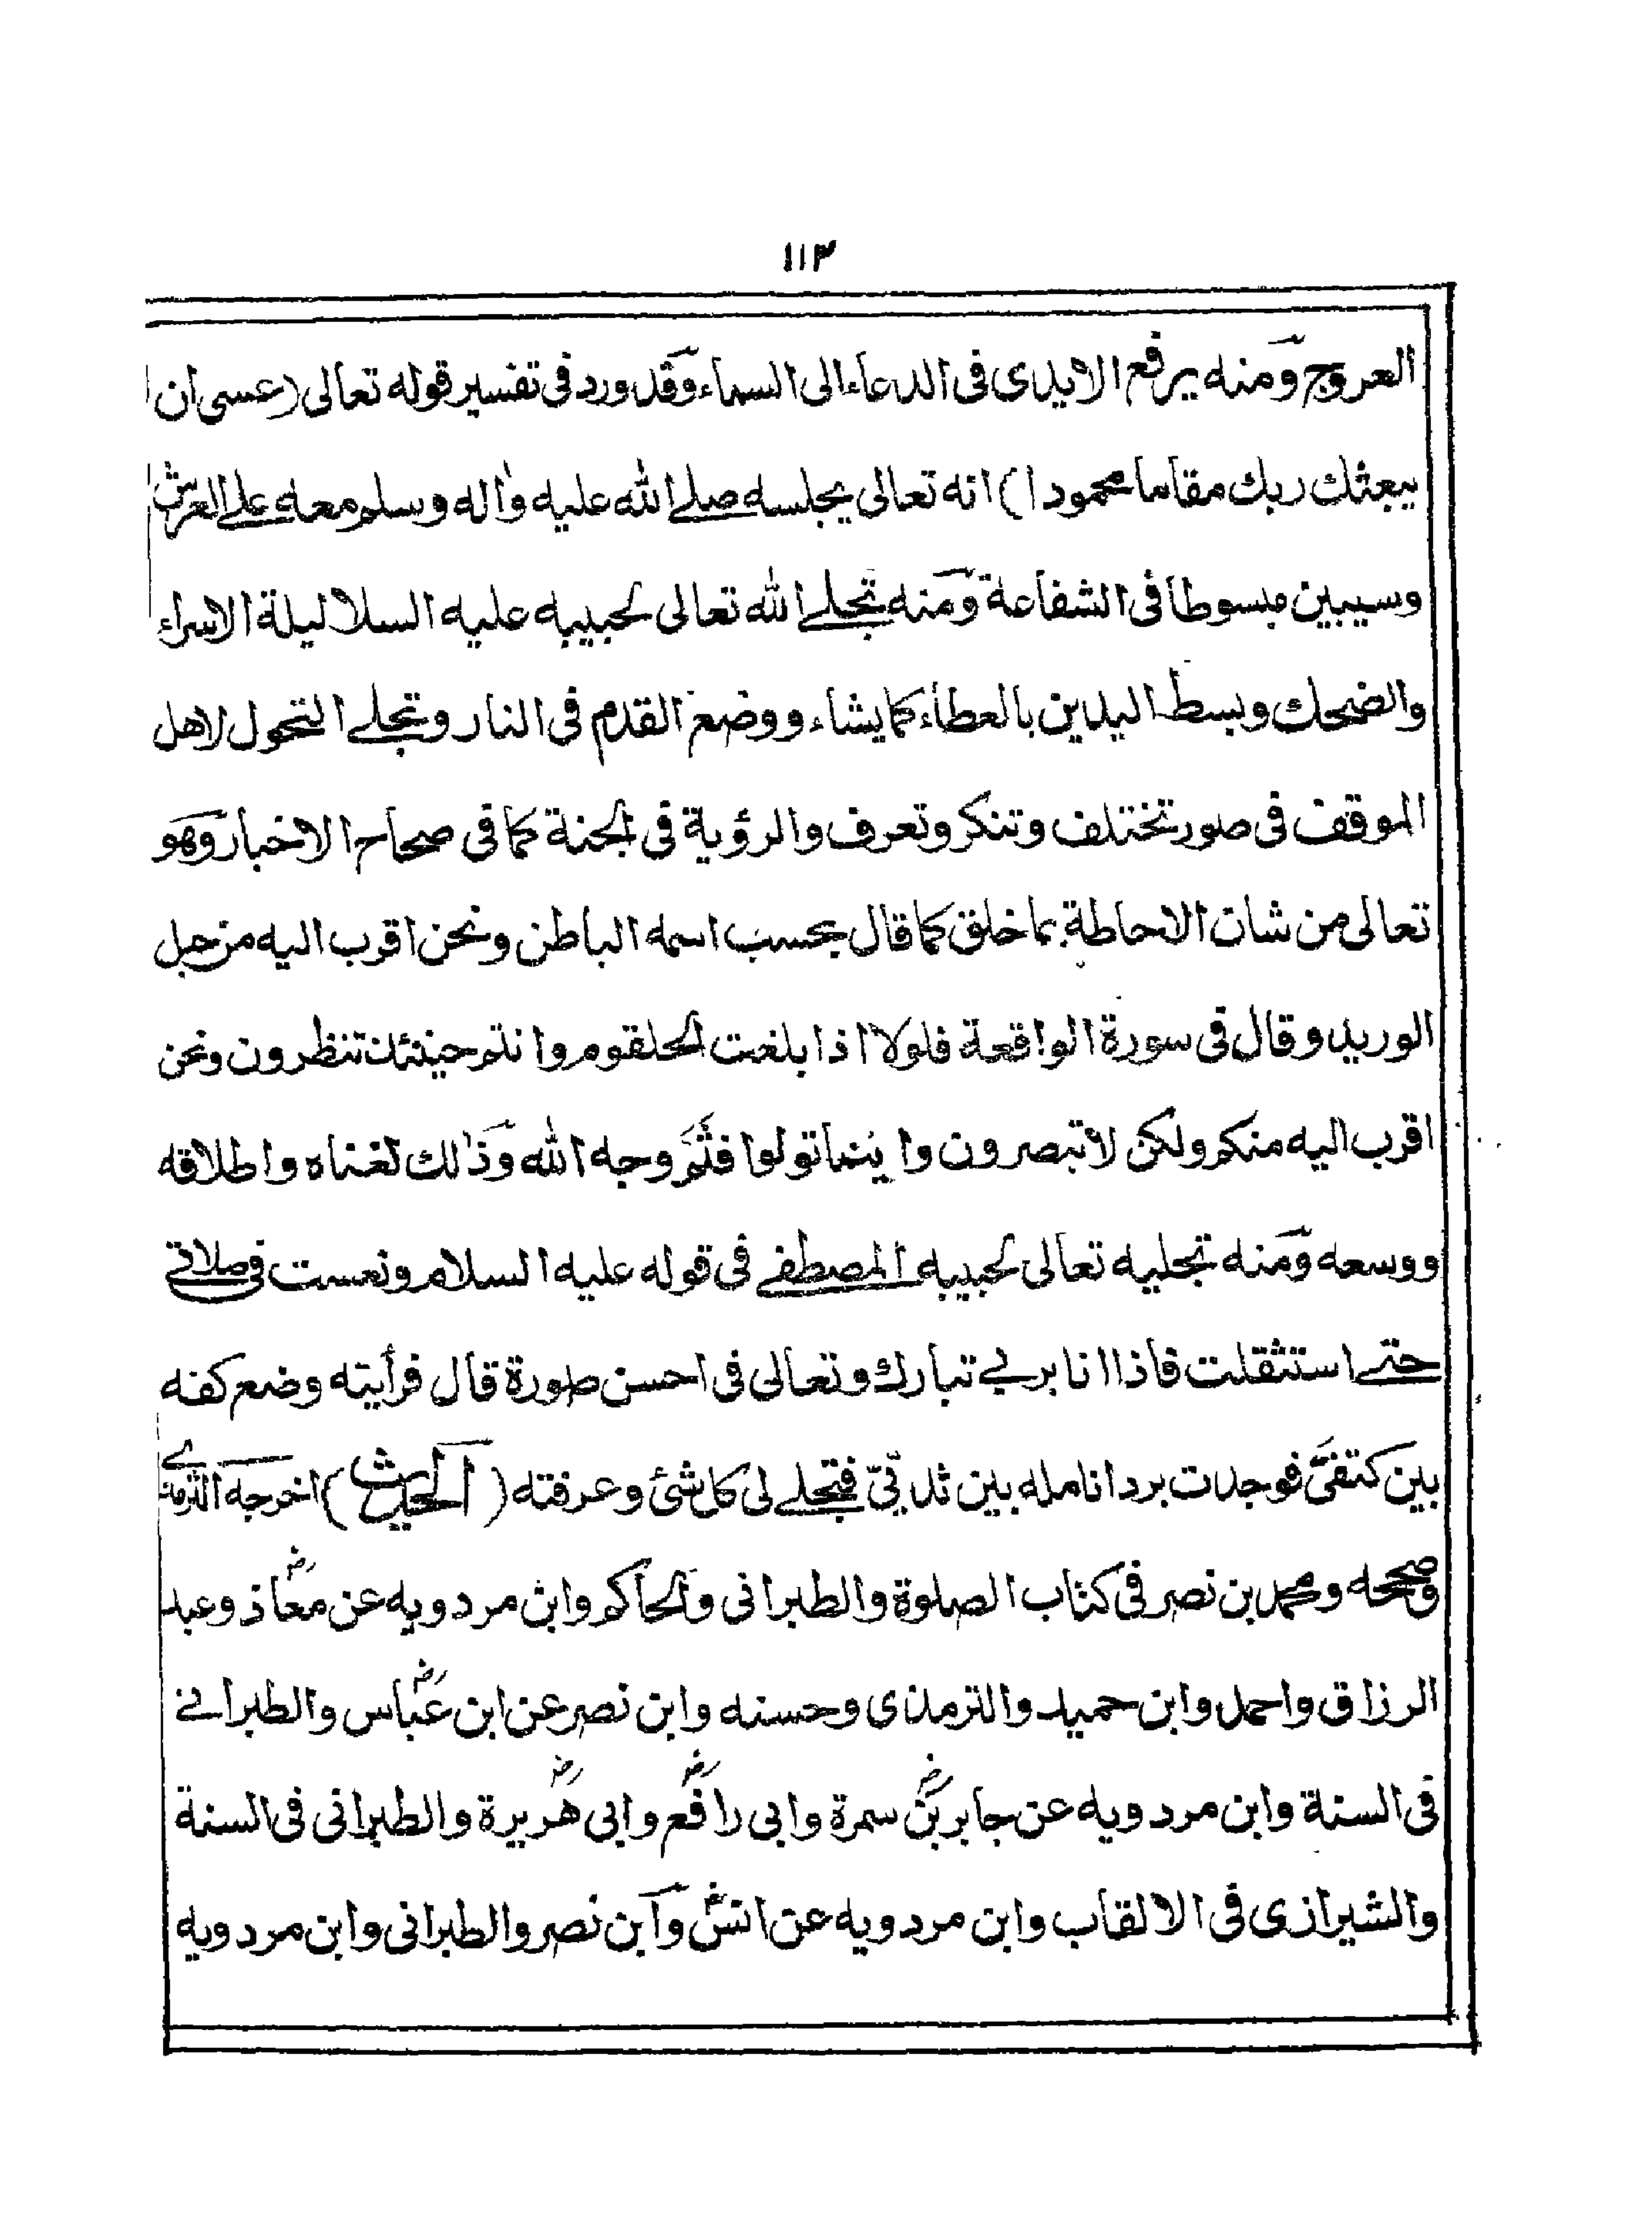 ١١٣
العروج ومنه يرفع الايدى فى الدعاء الى السماء وقد ورد فى تفسير قوله تعالى (عسى ان
يبعثك ربك مقاما محمودا) انه تعالى يجلسه صلے الله عليه واٰله وسلم معه علے العرش
وسيبين مبسوطا فى الشفاعة ومنه تجلے الله تعالى لحبيبه عليه السلا ليلة الاسراء
والضحك وبسط اليدين بالعطاء كما يشاء ووضع القدم فى النار وتجلے التحول لاهل
الموقف فى صور تختلف وتنكر وتعرف والرؤية فى الجنة كما فى صحاح الاخبار وهو
تعالى من شان الاحاطة بما خلق كما قال بحسب اسمه الباطن ونحن اقرب اليه من حبل
الوريد وقال فى سورة الواقعة فلولا اذا بلغت الحلقوم وانتم حينئذ تنظرون ونحن
اقرب اليه منكم ولكن لا تبصرون واينما تولوا فثَمَّ وجه الله وذٰلك لغناه واطلاقه
ووسعه ومنه تجليه تعالى لحبيبه المصطفے فى قوله عليه السلام ونعست فى صلاتے
حتے استثقلت فاذا انا بربے تبارك وتعالى فى احسن صورة قال فرأيته وضع كفه
بين كتفىَّ فوجدت برد انامله بين ثديىّ فتجلے لى كل شئ وعرفته (الحديث) اخرجه الترمذے
وصححه ومحمد بن نصر فى كتاب الصلوة والطبرانى والحاكم وابن مردويه عن معاذؓ وعبد
الرزاق واحمد وابن حميد والترمذى وحسنه وابن نصر عن ابن عباسؓ والطبرانے
فى السنة وابن مردويه عن جابر بنؓ سمرة وابى رافعؓ وابى هريرةؓ والطبرانى فى السنة
والشيرازى فى الالقاب وابن مردويه عن انسؓ وابن نصر والطبرانى وابن مردويه